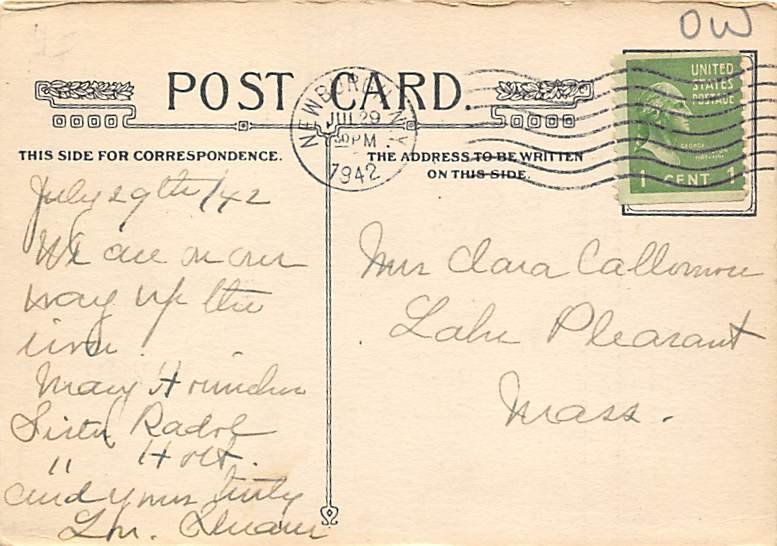 OW
POST CARD.
NEWBURGH N.Y.
JUL 29
PM
1942
UNITED
STATES
POSTAGE
1 CENT 1
THIS SIDE FOR CORRESPONDENCE.
THE ADDRESS TO BE WRITTEN
ON THIS SIDE.
July 29th/42
We are on our
way up the
Mary
Sister
" Holt.
and yours truly
Mrs Clara
Lake Pleasant
Mass.